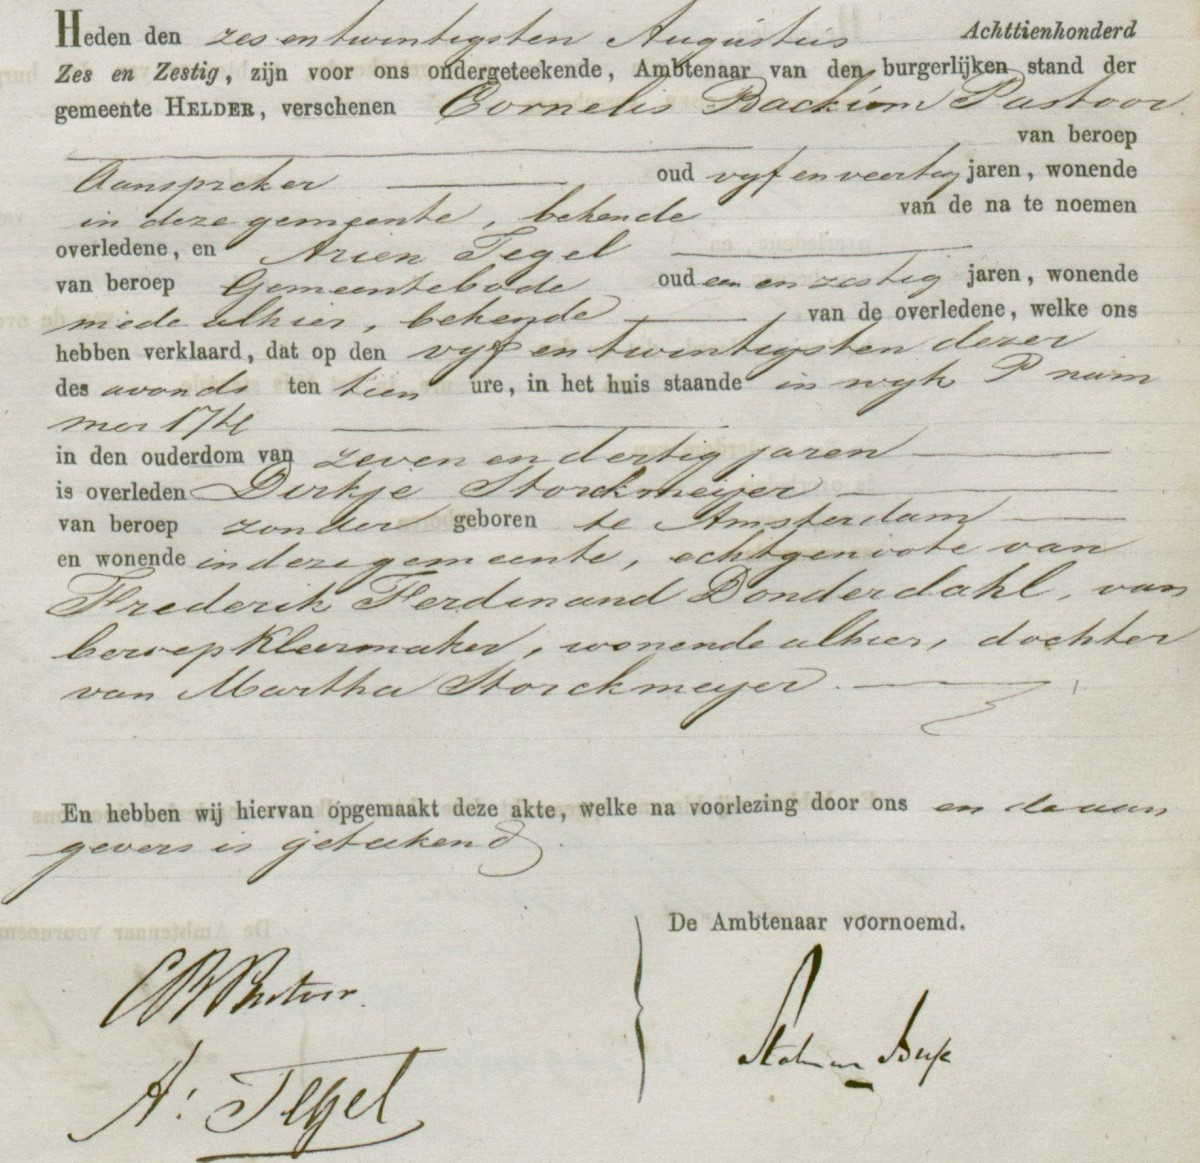 Heden den zes en twintigsten Augustus Achttienhonderd
Zes en Zestig, zijn voor ons ondergeteekende, Ambtenaar van den burgerlijken stand der
gemeente HELDER, verschenen Cornelis Backum Pastoor
van beroep
Aanspreker oud vyf en veertig jaren, wonende
in deze gemeente, bekende van de na te noemen
overledene, en Arien Tegel
van beroep Gemeentebode oud een en zestig jaren, wonende
mede alhier, bekende van de overledene, welke ons
hebben verklaard, dat op den vyf en twintigsten dezer
des avonds ten tien ure, in het huis staande in wyk P num
mer 174
in den ouderdom van zeven en dertig jaren
is overleden Dirkje Storckmeijer
van beroep zonder geboren te Amsterdam
en wonende in deze gemeente, echtgenoote van
Frederik Ferdinand Donderdahl, van
beroep Kleermaker, wonende alhier, dochter
van Martha Storckmeyer
En hebben wij hiervan opgemaakt deze akte, welke na voorlezing door ons en de aan
gevers is geteekend.
De Ambtenaar voornoemd.
CB Pastoor.
A: Tegel